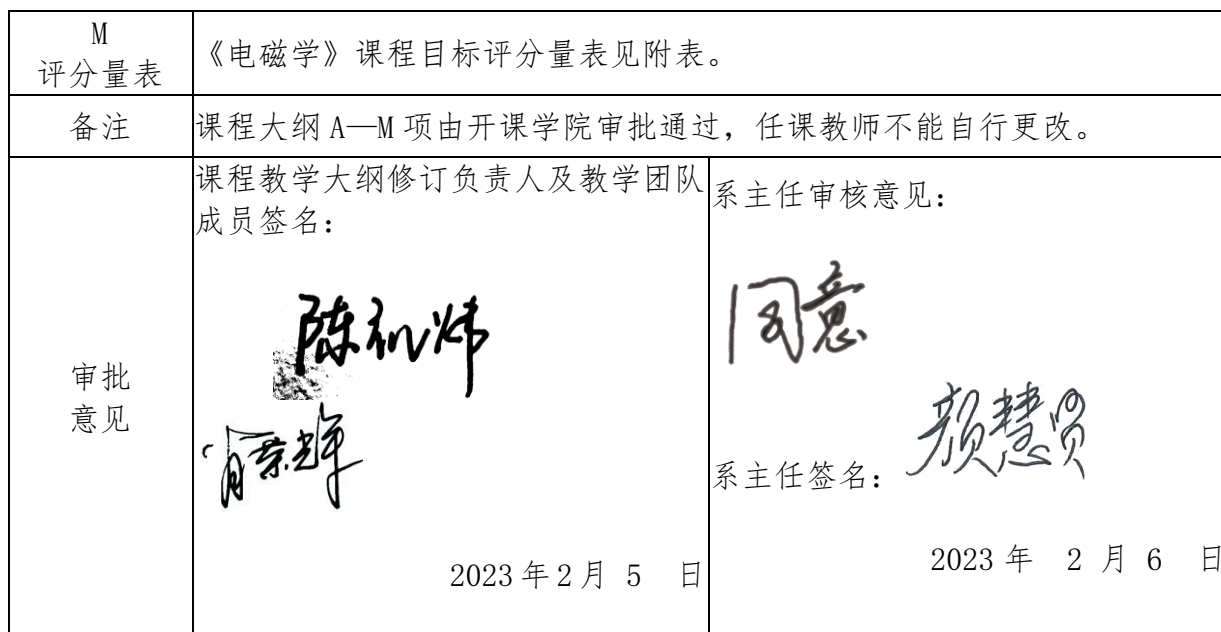 M
评分量表
《电磁学》课程目标评分量表见附表。
备注
课程大纲 A—M 项由开课学院审批通过，任课教师不能自行更改。
审批
意见
课程教学大纲修订负责人及教学团队
成员签名：
2023 年 2 月 5 日
系主任审核意见：
同意
系主任签名：
颜慧贤
2023 年 2 月 6 日